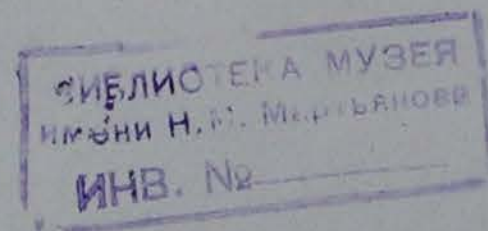 БИБЛИОТЕКА МУЗЕЯ
имени Н.М. Мартьянова
ИНВ. №